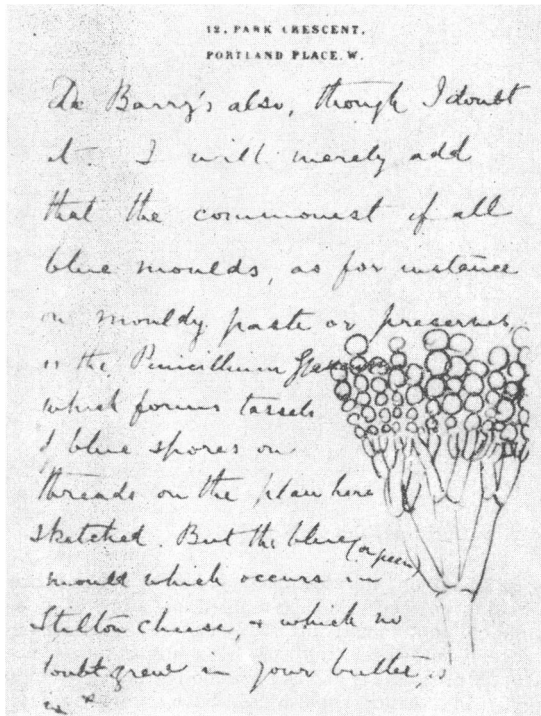 12, PARK CRESCENT,
PORTLAND PLACE. W.
De Barry's also, though I doubt
it. I will merely add
that the commonest of all
blue moulds, as for instance
on mouldy paste or preserves,
is the Penicillium
which forms tassels
of blue spores on
threads on the plan here
sketched. But the blue (or green)
mould which occurs in
Stilton cheese, & which no
doubt grew in your butter, is
in